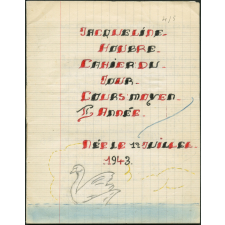 Jacqueline.
Houbre.
Cahier du
Jour.
Cours moyen.
II Année.
Née le 12 Juillet.
1943.